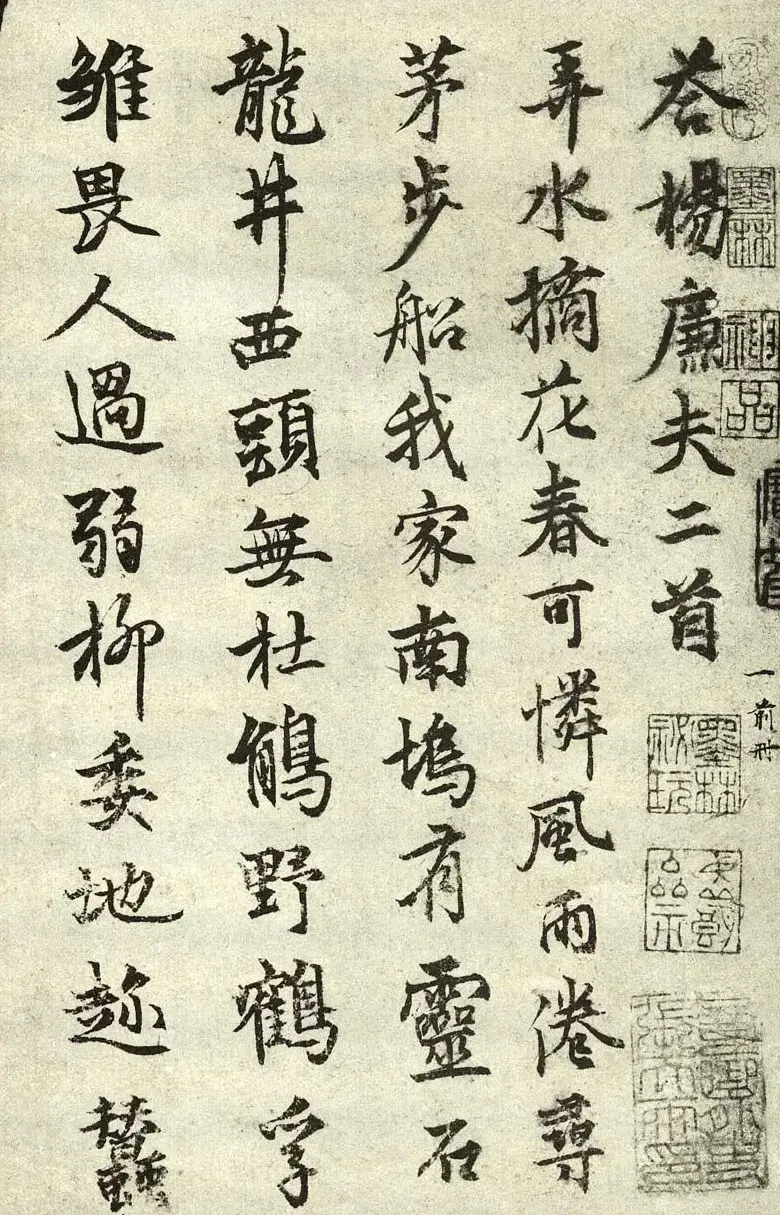 墨林
神品
墨林秘玩
荅楊廉夫二首
弄水摘花春可憐風雨港尋
茅步船我家南塢有靈石
龍井西頭無杜鵑野鶴孚
雛畏人過弱柳委地趂蠶